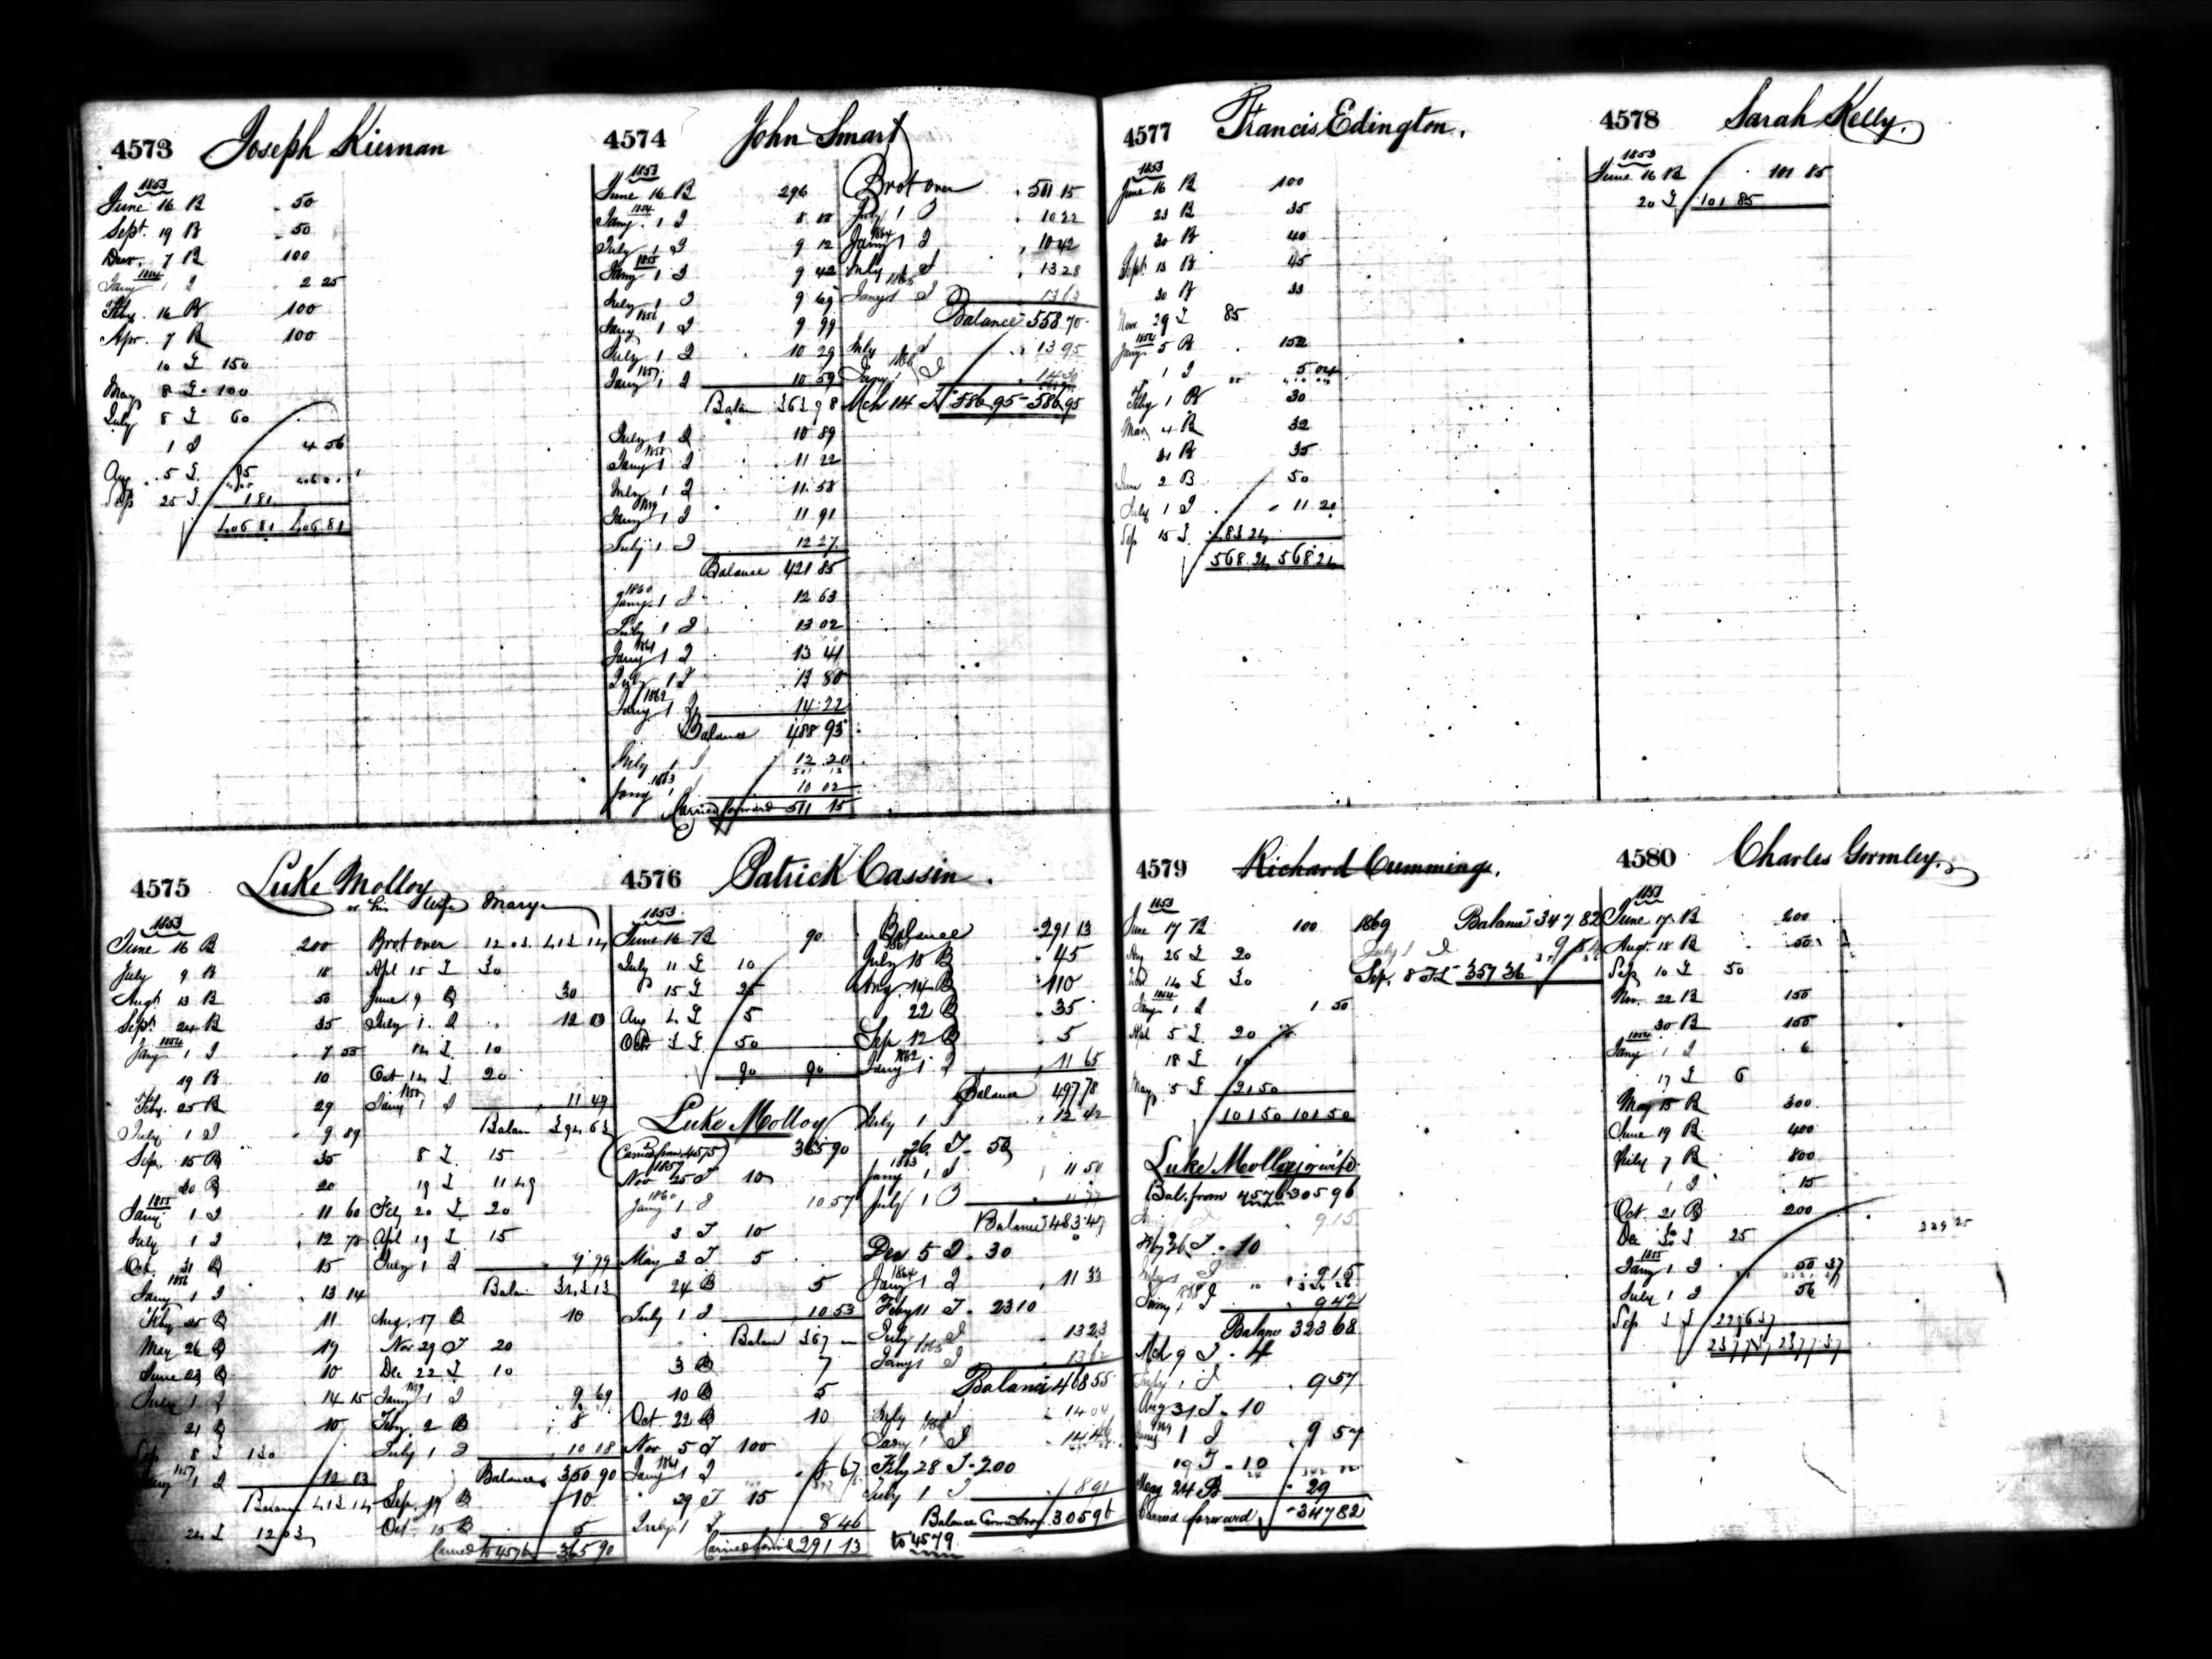 4573 Joseph Kiernan
1853
June 16 B 50
Sept. 19 B 50
Decr. 7 B 100
1854
Jany 1 I 2 25
Feby. 16 B 100
Apr. 7 B 100
10 I 150
May 8 I 100
July 8 I 60
1 I 4 56
Aug. 5 I 95
Sep 25 I 1 81
406 81 406 81
4574 John Smart
1853
June 16 B 296
1854
Jany. 1 I 8 88
July 1 I 9 12
1855
Jany 1 I 9 42
July 1 I 9 69
1856
Jany 1 I 9 99
July 1 I 10 29
1857
Jany 1 I 10 59
Balan 363 98
July 1 I 10 89
1858
Jany 1 I 11 22
July 1 I 11 58
1859
Jany 1 I 11 91
July 1 I 12 27
Balance 421 85
1860
Jany. 1 I 12 63
July 1 I 13 02
1861
Jany 1 I 13 41
July 1 I 13 80
1862
Jany 1 I 14 22
Balance 488 93
July 1 I 12 20
1863
Jany 1 10 02
Carried forward 511 15
Brot over 511 15
July 1 I 10 22
1864
Jany 1 I 10 42
July 1 I 13 28
1865
Jany 1 I 13 63
Balance 558 70
July 1 I 13 95
1866
Jany 1 I 14 30
Mch 14 I 586 95 586 95
4575 Luke Molloy
or his wife Mary
1853
June 16 B 200
July 9 B 18
Augt 13 B 50
Sept. 24 B 35
1854
Jany 1 I 7 55
19 B 10
Feby. 25 B 29
July 1 I 9 89
Sep. 15 B 35
30 B 20
1855
Jany 1 I 11 60
July 1 I 12 78
Oct. 31 B 15
1856
Jany 1 I 13 14
Feby 25 B 11
May 26 B 19
June 23 B 10
July 1 I 14 15
21 B 10
Sep 8 I 130
1857
Jany 1 I 12 03
Balance 413 14
24 I 12 03
Brot over 12 03 413 14
Apl 15 I 30
June 9 B 30
July 1 I 12 03
14 I 10
Oct 14 I 20
1858
Jany 1 I 11 49
Balan 394 63
8 I 15
19 I 11 49
Feb 20 I 20
Apl 19 I 15
July 1 I 9 99
Balan 343 13
Aug. 17 B 10
Nov 29 I 20
Dec 22 I 10
1859
Jany 1 I 9 69
Feby. 2 B 8
July 1 I 10 08
Balance 350 90
Sep. 19 B 10
Oct 15 B 5
Carried to 4576 365 90
4576 Patrick Cassin.
1853
June 16 B 90
July 11 I 10
15 I 25
Aug 4 I 5
Octr 3 I 50
90 90
Luke Molloy
(Carried from 4575) 365 90
Nov 25 I 10
1860
Jany 1 I 10 57
3 I 10
May 3 I 5
24 B 5
July 1 I 10 53
Balan 367
3 B 7
10 B 5
Oct. 22 B 10
Nov 5 I 100
1861
Jany 1 I 8 67
29 I 15
July 1 I 8 46
Carried forwd 291 13
Balance 291 13
1861
July 10 B 45
Aug. 14 B 110
22 B 35
Sep 12 B 5
1862
Jany 1 I 11 65
Balance 497 78
July 1 I 12 42
26 I 50
1863
Jany 1 I 11 50
July 1 I 11 77
Balance 483 47
Dec 5 I 30
1864
Jany 1 I 11 33
Feby 11 I 23 10
July 1 I 13 23
1865
Jany 1 I 13 62
Balance 468 55
July 1 I 14 04
1866
Jany 1 I 14 46
Feby 28 I 200
July 1 I 8 91
Balance Carried forwd 305 96
to 4579
4577 Francis Edington.
1853
June 16 B 100
23 B 35
30 B 40
Sept. 13 B 45
30 B 33
Nov 29 I 85
1854
Jany 5 B 152
1 I 5 04
Feby 1 B 30
Mar 4 B 32
31 B 35
June 2 B 50
July 1 I 11 20
Sep 15 I 483 24
568 24 568 24
4578 Sarah Kelly.
1853
June 16 B 101 85
20 I 101 85
4579 Richard Cummings.
1853
June 17 B 100
Aug 26 I 20
Nov 14 I 30
1854
Jany 1 I 1 50
Apl 5 I 20
18 I 10
May 5 I 21 50
101 50 101 50
Luke Molloy or wife
Bal. from 4576 305 96
9 15
Feby 26 I 10
July 1 I 9 15
1868
Jany 1 I 9 42
Balance 323 68
Mch 9 I 4
July 1 I 9 57
Aug 31 I 10
1869
Jany 1 I 9 57
19 I 10
May 24 B 29
Carried forward 347 82
1869 Balance 347 82
July 1 I 9 54
Sep. 8 I 357 36
4580 Charles Gormley.
1853
June 17 B 200
Augt. 18 B 50
Sep 10 I 50
Nov. 22 B 150
30 B 150
1854
Jany 1 I 6
17 I 6
May 15 B 300
June 19 B 400
July 7 B 800
1 I 15
Oct. 21 B 200
Dec 30 I 25
1855
Jany 1 I 50 37
July 1 I 56
Sep 3 I 2296 37
2377 37 2377 37